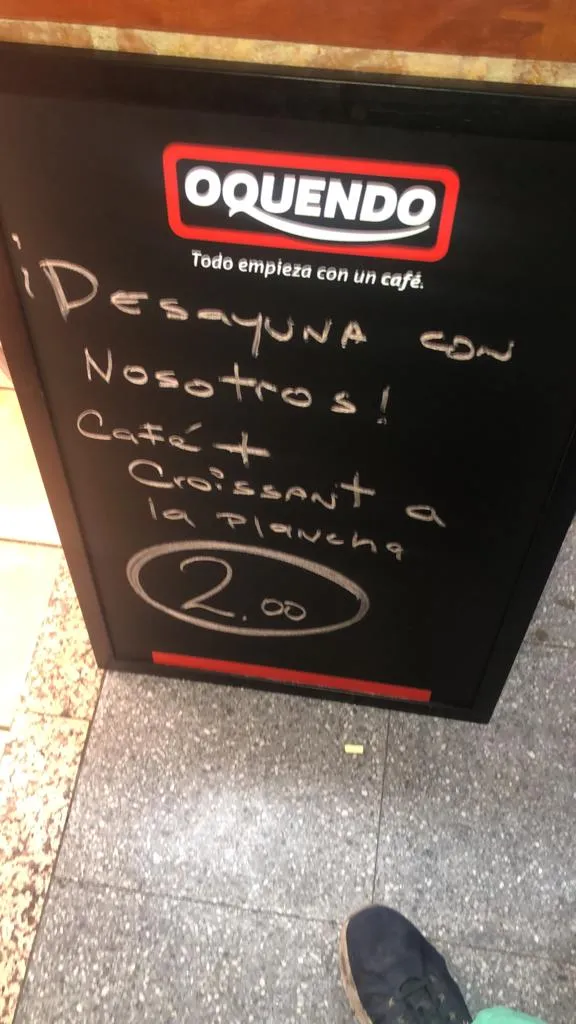 OQUENDO
Todo empieza con un café.
¡Desayuna con
Nosotros!
Café +
Croissant a
la plancha
2.00